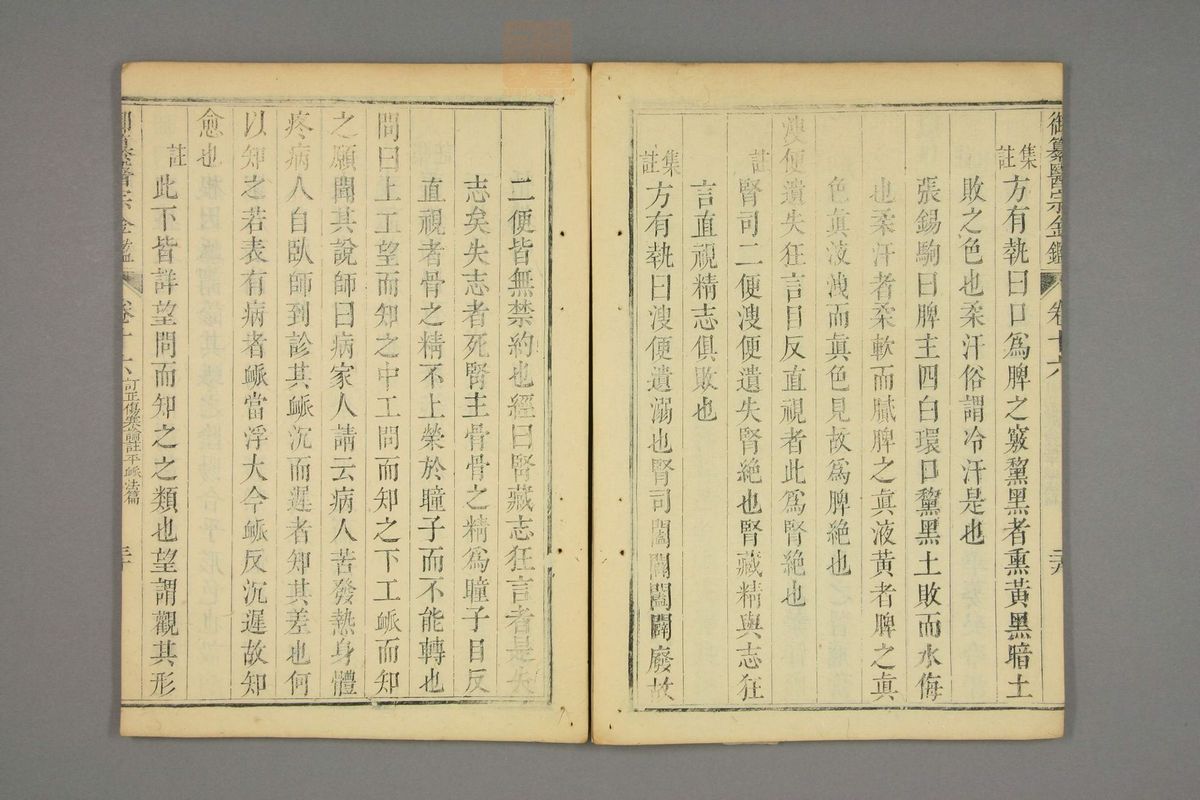 御纂醫宗金鑑 卷十六 三九
集註方有執曰口爲脾之竅黧黑者熏黃黑暗土
敗之色也柔汗俗謂冷汗是也
張錫駒曰脾主四白環口黧黑土敗而水侮
也柔汗者柔軟而膩脾之眞液黃者脾之眞
色眞液洩而眞色見故爲脾絶也
溲便遺失狂言目反直視者此爲腎絶也
註腎司二便溲便遺失腎絶也腎藏精與志狂
言直視精志俱敗也
集註方有執曰溲便遺溺也腎司闔闢闔闢廢故
二便皆無禁約也經曰腎藏志狂言者是失
志矣失志者死腎主骨骨之精爲瞳子目反
直視者骨之精不上榮於瞳子而不能轉也
問曰上工望而知之中工問而知之下工脈而知
之願聞其說師曰病家人請云病人苦發熱身體
疼病人自臥師到診其脈沉而遲者知其差也何
以知之若表有病者脈當浮大今脈反沉遲故知
愈也
註此下皆詳望問而知之之類也望謂觀其形
御纂醫宗金鑑 卷十六 訂正傷寒論註平脈法篇 三十